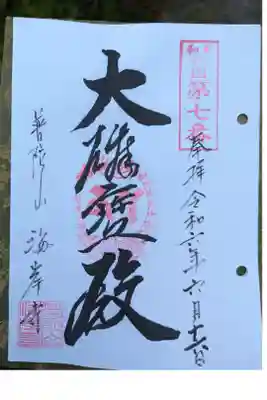 第七番
奉拝 令和六年六月十六日
大雄寳殿
普陀山 海岸寺